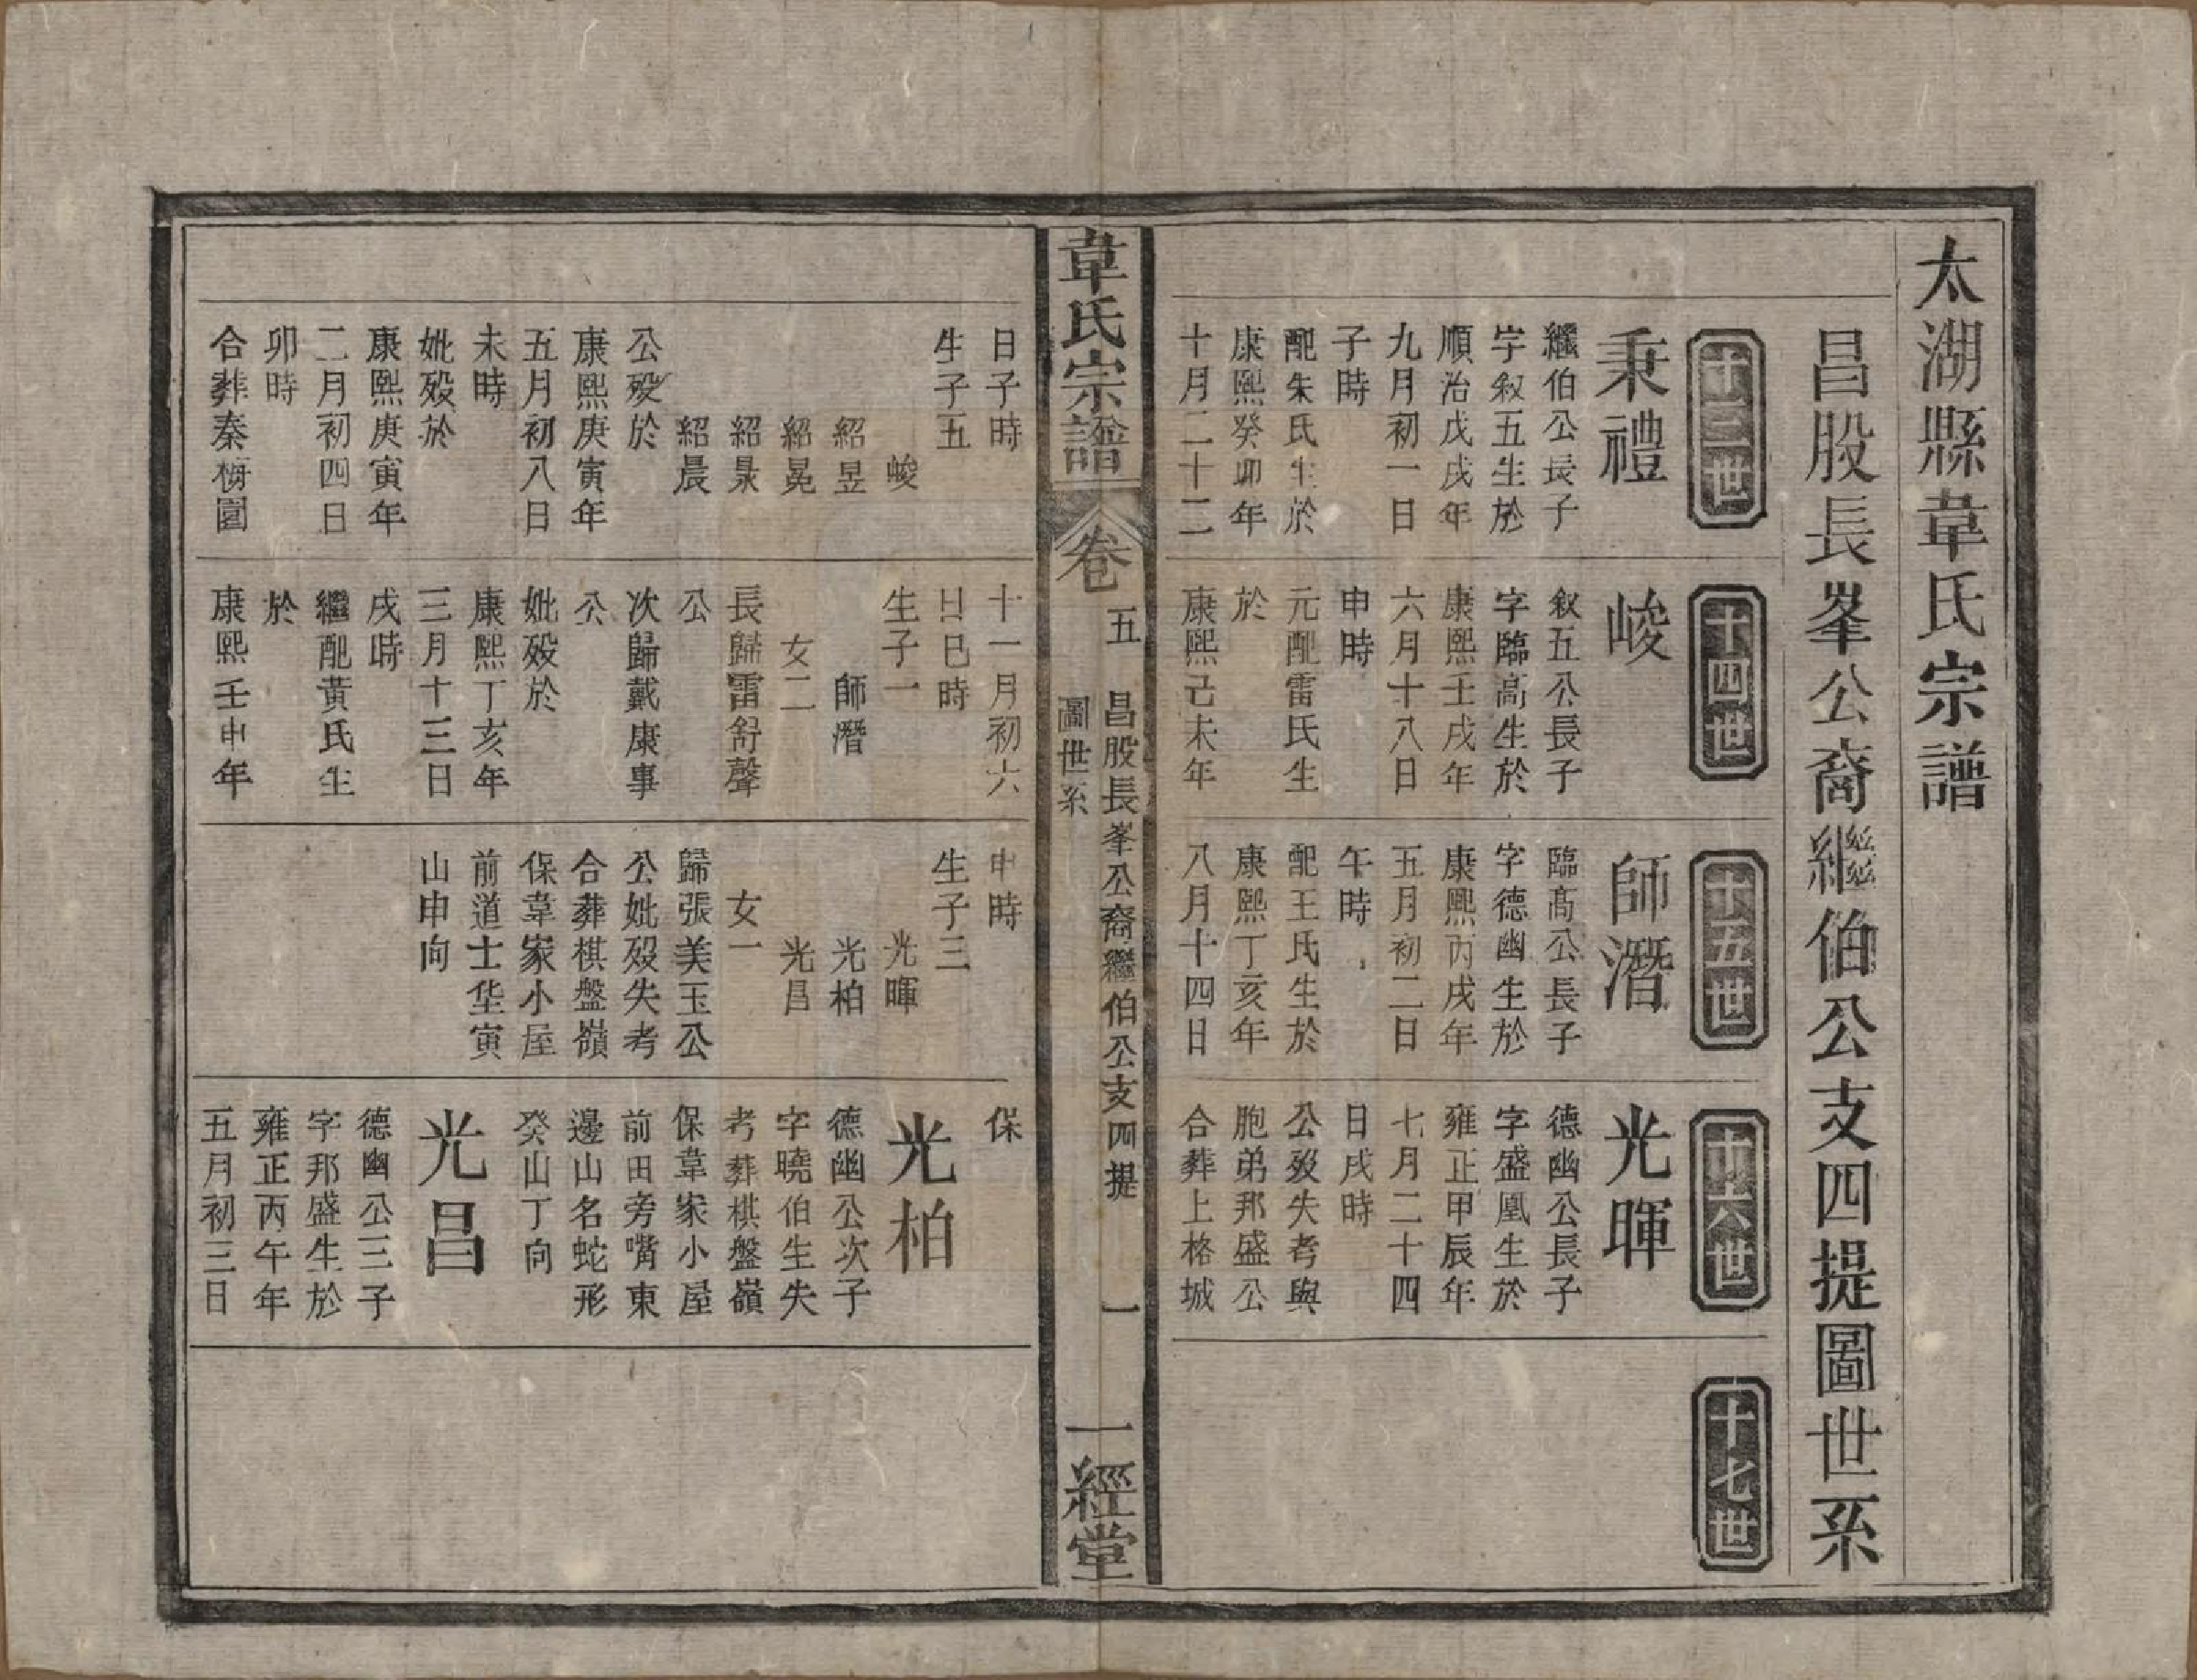 太湖縣韋氏宗譜
昌股長峯公裔繼伯公支四提圖世系
十三世
秉禮
繼伯公長子
字叙五生於
順治戊戌年
九月初一日
子時
配朱氏生於
康熙癸卯年
十月二十二
十四世
峻
叙五公長子
字臨高生於
康熙壬戌年
六月十八日
申時
元配雷氏生
於
康熙己未年
十五世
師潛
臨高公長子
字德幽生於
康熙丙戌年
五月初二日
午時
配王氏生於
康熙丁亥年
八月十四日
十六世
光暉
德幽公長子
字盛凰生於
雍正甲辰年
七月二十四
日戌時
公歿失考與
胞弟邦盛公
合葬上格城
十七世
韋氏宗譜
卷五
昌股長峯公裔繼伯公支四提
圖世系
一
一經堂
日子時
生子五
峻
紹昱
紹晃
紹晸
紹晨
公歿於
康熙庚寅年
五月初八日
未時
妣歿於
康熙庚寅年
二月初四日
卯時
合葬秦梅園
十一月初六
日巳時
生子一
師潛
女二
長歸雷舒聲
公
次歸戴康事
公
妣歿於
康熙丁亥年
三月十三日
戌時
繼配黃氏生
於
康熙壬申年
申時
生子三
光暉
光柏
光昌
女一
歸張美玉公
公妣歿失考
合葬棋盤嶺
保韋家小屋
前道士坐寅
山申向
保
光柏
德幽公次子
字曉伯生失
考葬棋盤嶺
保韋家小屋
前田旁嘴東
邊山名蛇形
癸山丁向
光昌
德幽公三子
字邦盛生於
雍正丙午年
五月初三日